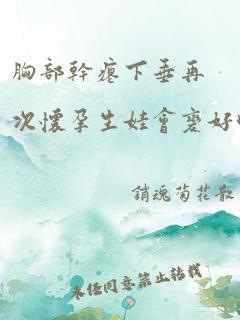 胸部幹瘪下垂再
次懷孕生娃會變好
銷魂菊花散
未经同意禁止转载